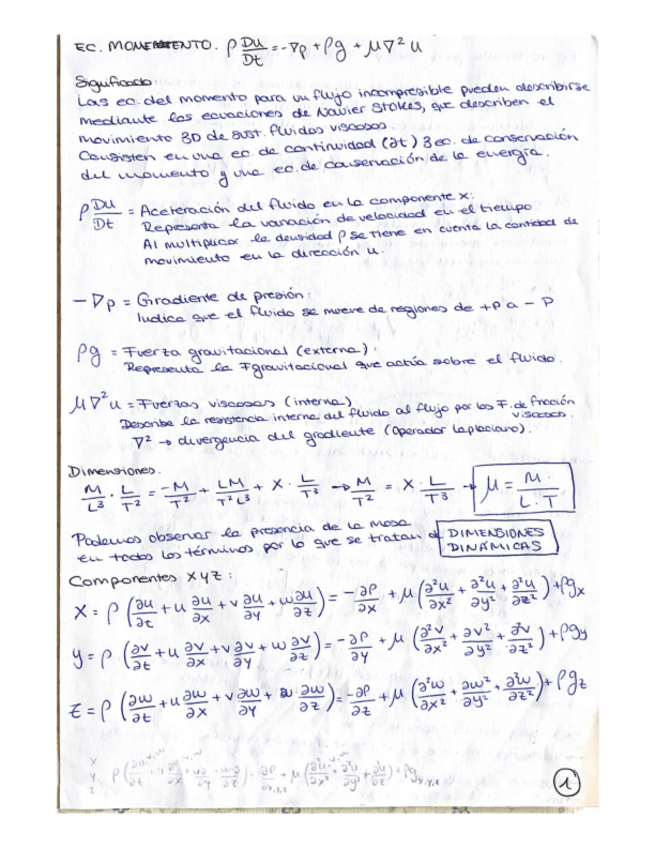 EC. MOMENTO. ρ Du/Dt = -∇p + ρg + μ∇²u
Significado:
Las ec. del momento para un flujo incompresible pueden describirse
mediante las ecuaciones de Navier Stokes, que describen el
movimiento 3D de sust. fluidas viscosas.
Consisten en una ec. de continuidad (∂t) 3 ec. de conservación
del momento y una ec. de conservación de la energía.
ρ Du/Dt = Aceleración del fluido en la componente x:
Representa la variación de velocidad en el tiempo
Al multiplicar la densidad ρ se tiene en cuenta la cantidad de
movimiento en la dirección u.
-∇p = Gradiente de presión:
Indica que el fluido se mueve de regiones de +P a - P
ρg = Fuerza gravitacional (externa):
Representa la Fgravitacional que actúa sobre el fluido.
μ∇²u = Fuerzas viscosas (interna)
Describe la resistencia interna del fluido al flujo por las F. de fricción
viscosas.
∇² → divergencia del gradiente (Operador laplaciano).
Dimensiones.
M/L³ · L/T² = -M/T² + LM/T²L³ + X · L/T³ → M/T² = X · L/T³ → μ = M/L·T
Podemos observar la presencia de la masa
en todos los términos, por lo que se tratan de DIMENSIONES
DINÁMICAS
Componentes XYZ:
X = ρ (∂u/∂t + u ∂u/∂x + v ∂u/∂y + w ∂u/∂z) = -∂P/∂x + μ (∂²u/∂x² + ∂²u/∂y² + ∂²u/∂z²) + ρgx
y = ρ (∂v/∂t + u ∂v/∂x + v ∂v/∂y + w ∂v/∂z) = -∂P/∂y + μ (∂²v/∂x² + ∂v²/∂y² + ∂²v/∂z²) + ρgy
z = ρ (∂w/∂t + u ∂w/∂x + v ∂w/∂y + w ∂w/∂z) = -∂P/∂z + μ (∂²w/∂x² + ∂w²/∂y² + ∂²w/∂z²) + ρgz
x
y
z
1